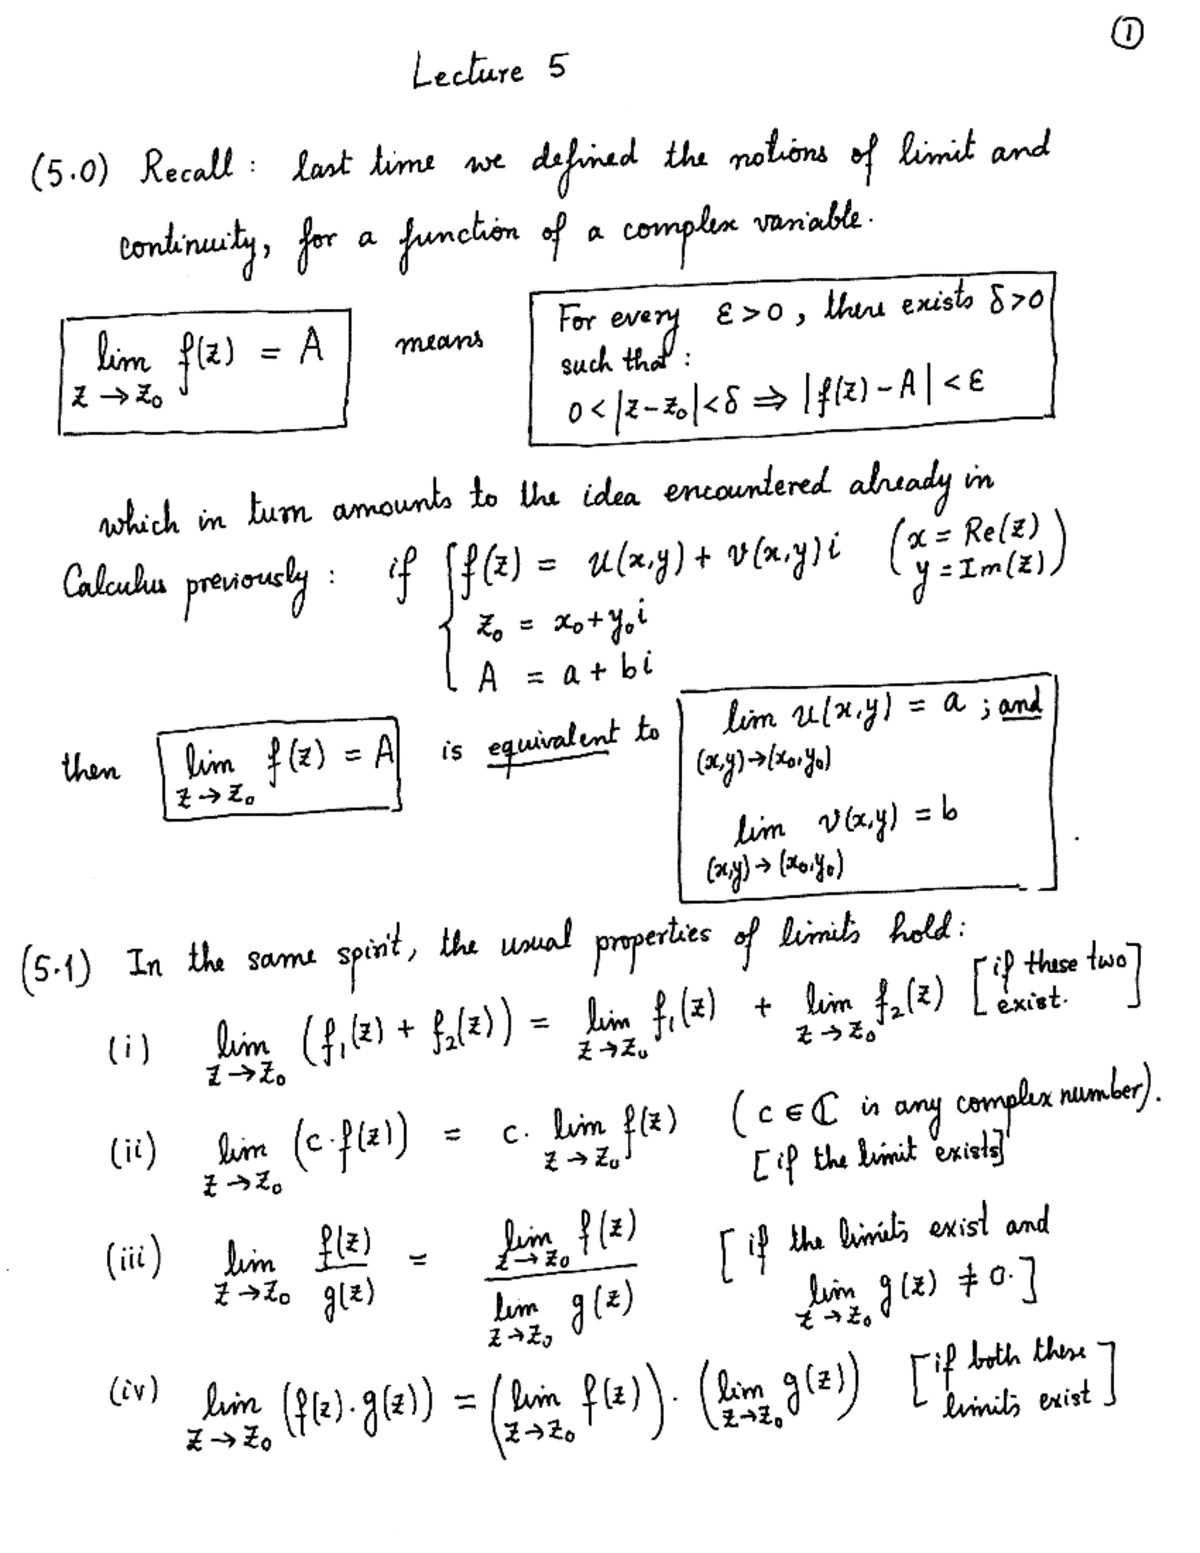 ①
Lecture 5
(5.0) Recall : last time we defined the notions of limit and
continuity, for a function of a complex variable.
lim f(z) = A means For every ε>0, there exists δ>0
z→z₀ such that :
0<|z-z₀|<δ ⇒ |f(z)-A|<ε
which in turn amounts to the idea encountered already in
Calculus previously : if { f(z) = u(x,y) + v(x,y)i (x = Re(z)
y = Im(z))
z₀ = x₀+y₀i
A = a + bi
then lim f(z) = A is equivalent to lim u(x,y) = a ; and
z→z₀ (x,y)→(x₀,y₀)
lim v(x,y) = b
(x,y)→(x₀,y₀) .
(5.1) In the same spirit, the usual properties of limits hold :
(i) lim (f₁(z) + f₂(z)) = lim f₁(z) + lim f₂(z) [if these two
z→z₀ z→z₀ z→z₀ exist.]
(ii) lim (c·f(z)) = c. lim f(z) (c ∈ ℂ is any complex number).
z→z₀ z→z₀ [if the limit exists]
(iii) lim f(z)/g(z) = lim f(z) / lim g(z) [if the limits exist and
z→z₀ z→z₀ z→z₀ lim g(z) ≠ 0.]
z→z₀
(iv) lim (f(z)·g(z)) = (lim f(z)) · (lim g(z)) [if both these
z→z₀ z→z₀ z→z₀ limits exist]